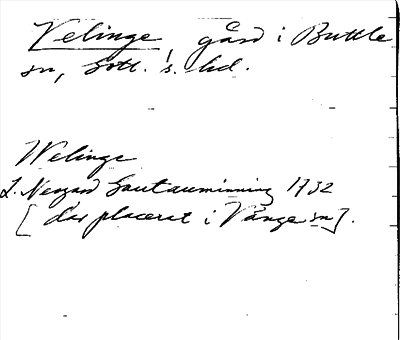 Velinge, gård i Buttle
sn, Gotl. s. hd.
Welinge
L. Neogard Gautauminning 1732
[där placerat i Vänge sn].